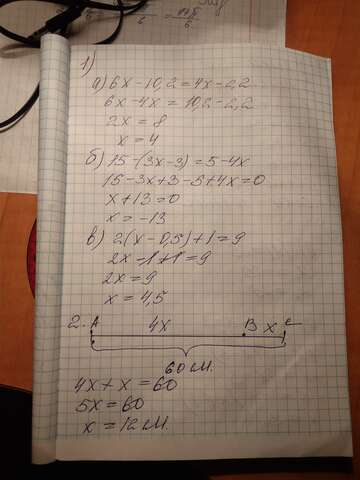 1)
а) 6x-10,2=4x-2,2
6x-4x=10,2-2,2
2x=8
x=4
б) 15-(3x-3)=5-4x
15-3x+3-5+4x=0
x+13=0
x=-13
в) 2(x-0,5)+1=9
2x-1+1=9
2x=9
x=4,5
2. A 4x B x C
60 см.
4x+x=60
5x=60
x=12см.